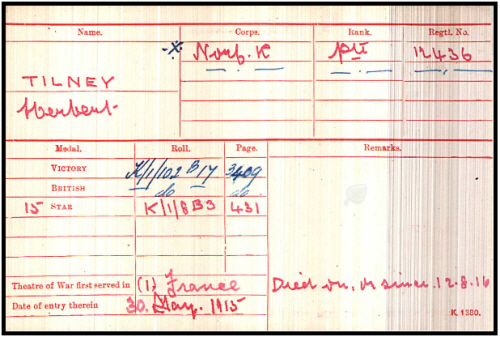 Name. Corps. Rank. Regtl. No.
-X Norf. R Pte 12436
TILNEY
Herbert
Medal. Roll. Page. Remarks.
VICTORY K/1/102 B17 3409
BRITISH do do
15 STAR K/1/8 B3 431
Theatre of War first served in (1) France
Died on, or since. 12.8.16
Date of entry therein 30. May. 1915
K. 1380.